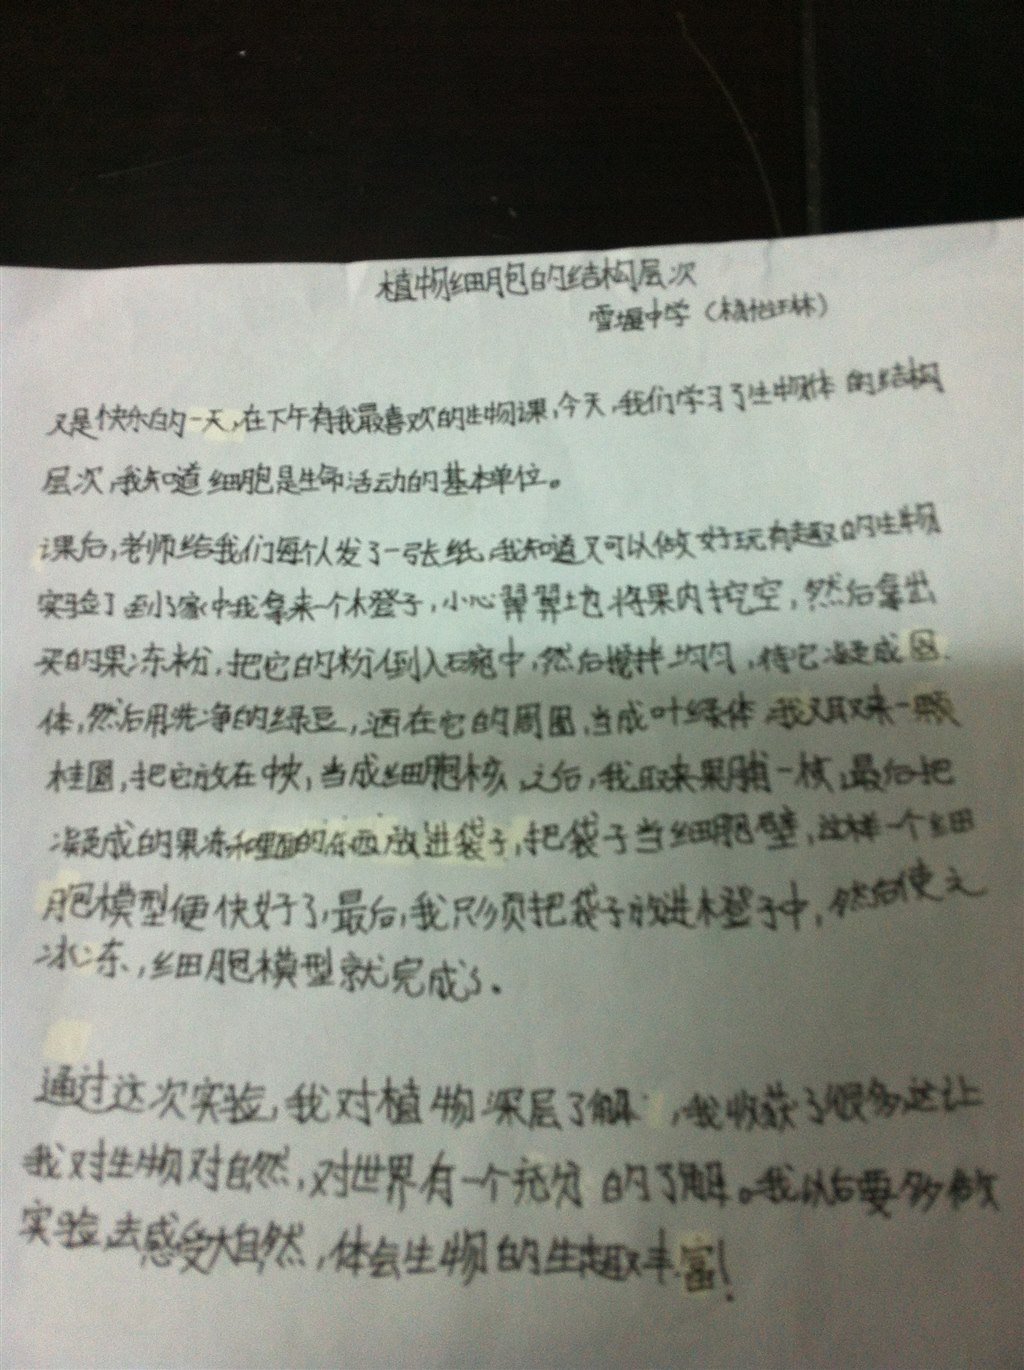 植物细胞的结构层次
雪堰中学（杨怡林）
又是快乐的一天,在下午有我最喜欢的生物课,今天,我们学习了生物体的结构
层次,我知道细胞是生命活动的基本单位。
课后,老师给我们每个人发了一张纸,我知道又可以做好玩有趣的生物
实验了到了家中我拿来一个木登子,小心翼翼地将果肉挖空,然后拿出
买的果冻粉,把它的粉倒入碗中,然后搅拌均匀,待它凝成固
体,然后用洗净的绿豆,洒在它的周围,当成叶绿体,我又取来一颗
桂圆,把它放在中央,当成细胞核,之后,我取来果脯一核,最后把
凝成的果冻和里面的东西放进袋子,把袋子当细胞壁,这样一个细
胞模型便快好了,最后,我只须把袋子放进木登子中,然后使之
冰冻,细胞模型就完成了。
通过这次实验,我对植物深层了解,我收获了很多这让
我对生物对自然,对世界有一个充分的了解。我以后要多做
实验,去感受大自然,体会生物的生趣丰富!